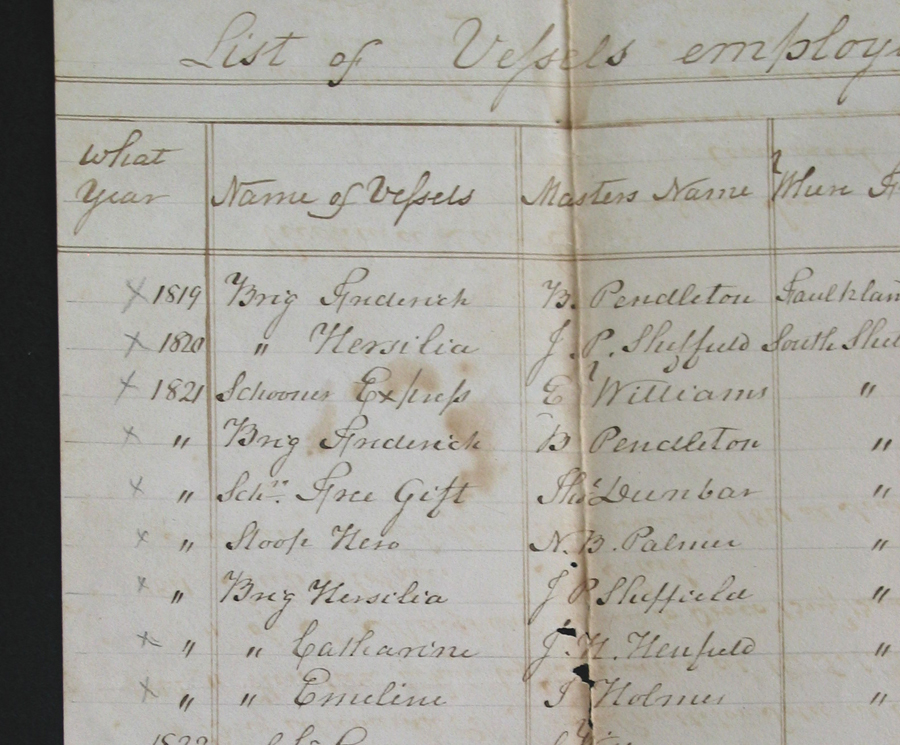 List of Vessels employ
what
Year Name of Vessels Masters Name Where
x 1819 Brig Frederick B. Pendleton Faulklan
x 1820 " Hersilia J. P. Sheffield South Shet
x 1821 Schooner Express E Williams "
x " Brig Frederick B Pendleton "
x " Schr. Free Gift Thos Dunbar "
x " Sloop Hero N. B. Palmer "
x " Brig Hersilia J P Sheffield "
x " " Catharine J. H. Henfield "
x " " Emeline J Holmes "
1822